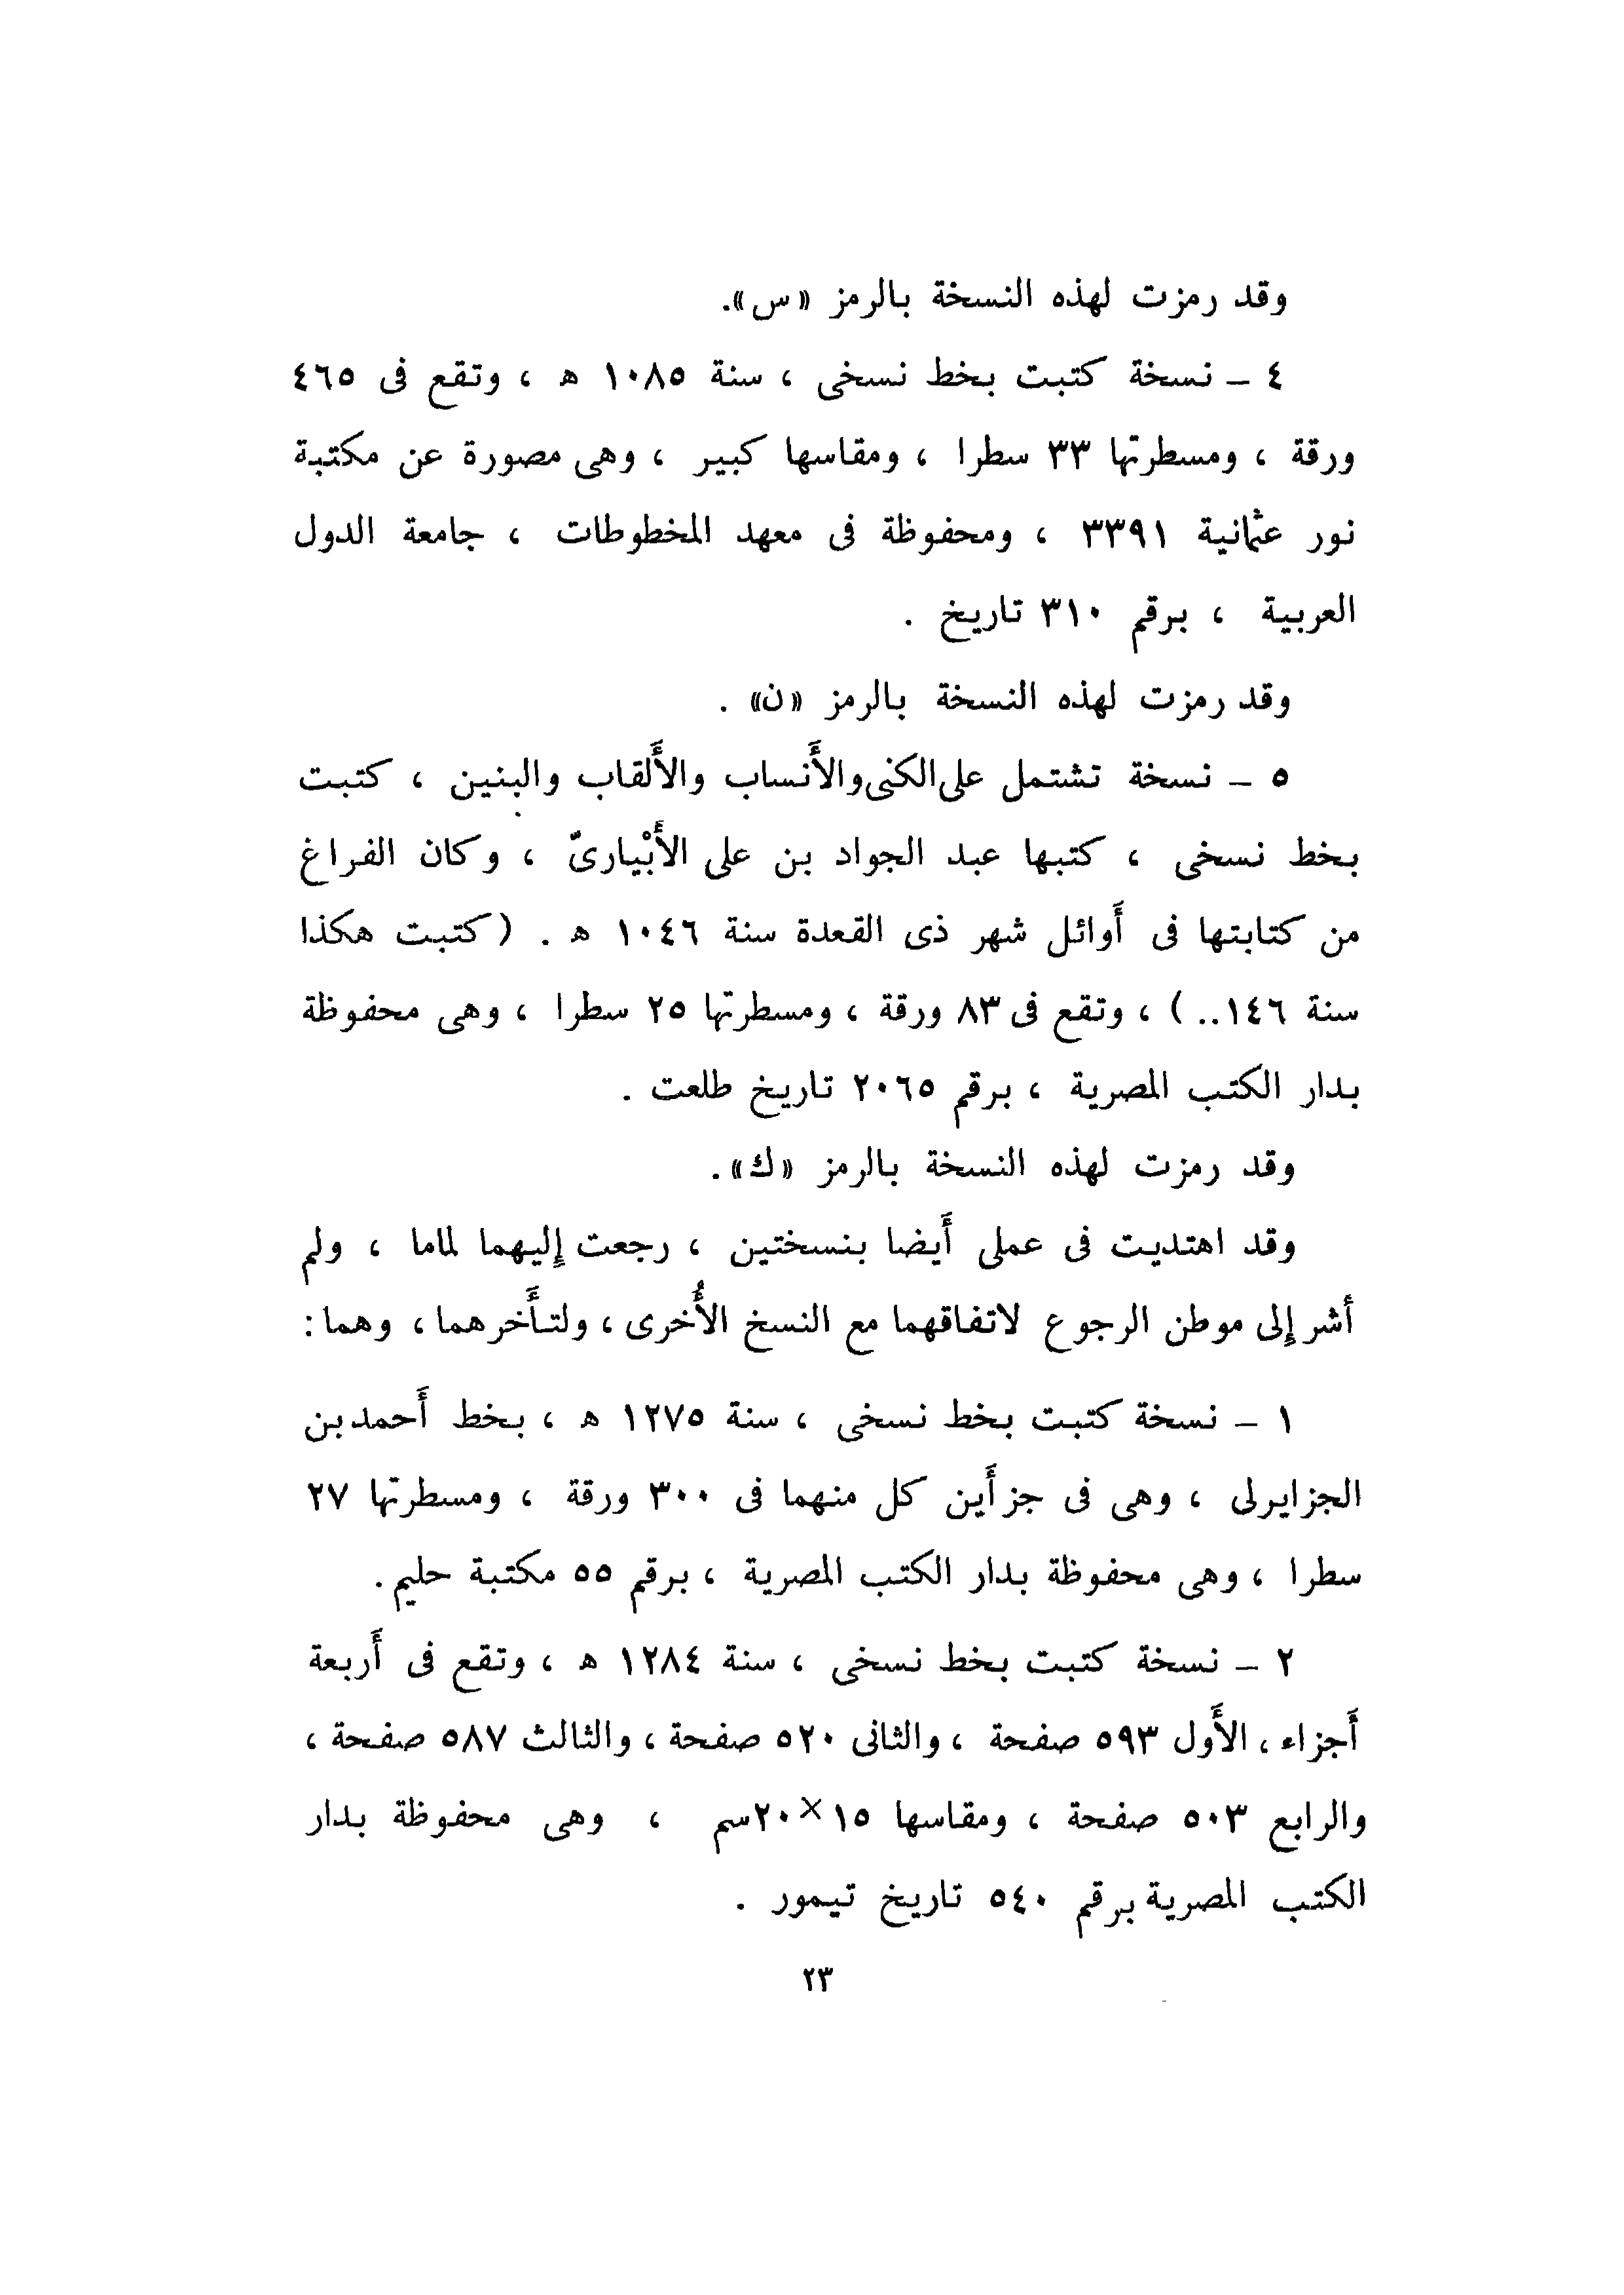 وقد رمزت لهذه النسخة بالرمز «س».
٤ – نسخة كتبت بخط نسخى ، سنة ١٠٨٥ ه ، وتقع فى ٤٦٥
ورقة ، ومسطرتها ٣٣ سطرا ، ومقاسها كبير ، وهى مصورة عن مكتبة
نور عثمانية ٣٣٩١ ، ومحفوظة فى معهد المخطوطات ، جامعة الدول
العربية ، برقم ٣١٠ تاريخ .
وقد رمزت لهذه النسخة بالرمز «ن» .
٥ – نسخة تشتمل على الكنى والأَنساب والأَلقاب والبنين ، كتبت
بخط نسخى ، كتبها عبد الجواد بن على الأَبْيارىّ ، وكان الفراغ
من كتابتها فى أَوائل شهر ذى القعدة سنة ١٠٤٦ ه . (كتبت هكذا
سنة ١٤٦..) ، وتقع فى ٨٣ ورقة ، ومسطرتها ٢٥ سطرا ، وهى محفوظة
بدار الكتب المصرية ، برقم ٢٠٦٥ تاريخ طلعت .
وقد رمزت لهذه النسخة بالرمز «ك».
وقد اهتديت فى عملى أَيضا بنسختين ، رجعت إليهما لماما ، ولم
أشر إلى موطن الرجوع لاتفاقهما مع النسخ الأُخرى ، ولتأَخرهما ، وهما :
١ – نسخة كتبت بخط نسخى ، سنة ١٢٧٥ ه ، بخط أَحمد بن
الجزايرلى ، وهى فى جزأَين كل منهما فى ٣٠٠ ورقة ، ومسطرتها ٢٧
سطرا ، وهى محفوظة بدار الكتب المصرية ، برقم ٥٥ مكتبة حليم .
٢ – نسخة كتبت بخط نسخى ، سنة ١٢٨٤ ه ، وتقع فى أَربعة
أَجزاء ، الأَول ٥٩٣ صفحة ، والثانى ٥٢٠ صفحة ، والثالث ٥٨٧ صفحة ،
والرابع ٥٠٣ صفحة ، ومقاسها ١٥×٢٠سم ، وهى محفوظة بدار
الكتب المصرية برقم ٥٤٠ تاريخ تيمور .
٢٣